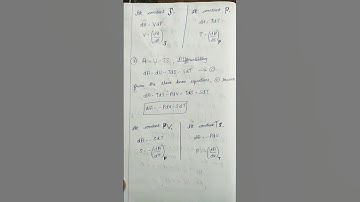 At constant S.
dH = VdP
V = (dH/dP)S
At constant P.
dH = TdS
T = (dH/dS)P
③ A = U - TS, Differentiating
dA = dU - TdS - SdT → ①
From the above known equations, ① becomes
dA = TdS - PdV - TdS - SdT
dA = -PdV - SdT
At constant V,
dA = -SdT
S = -(dA/dT)
At constant T,
dA = -PdV